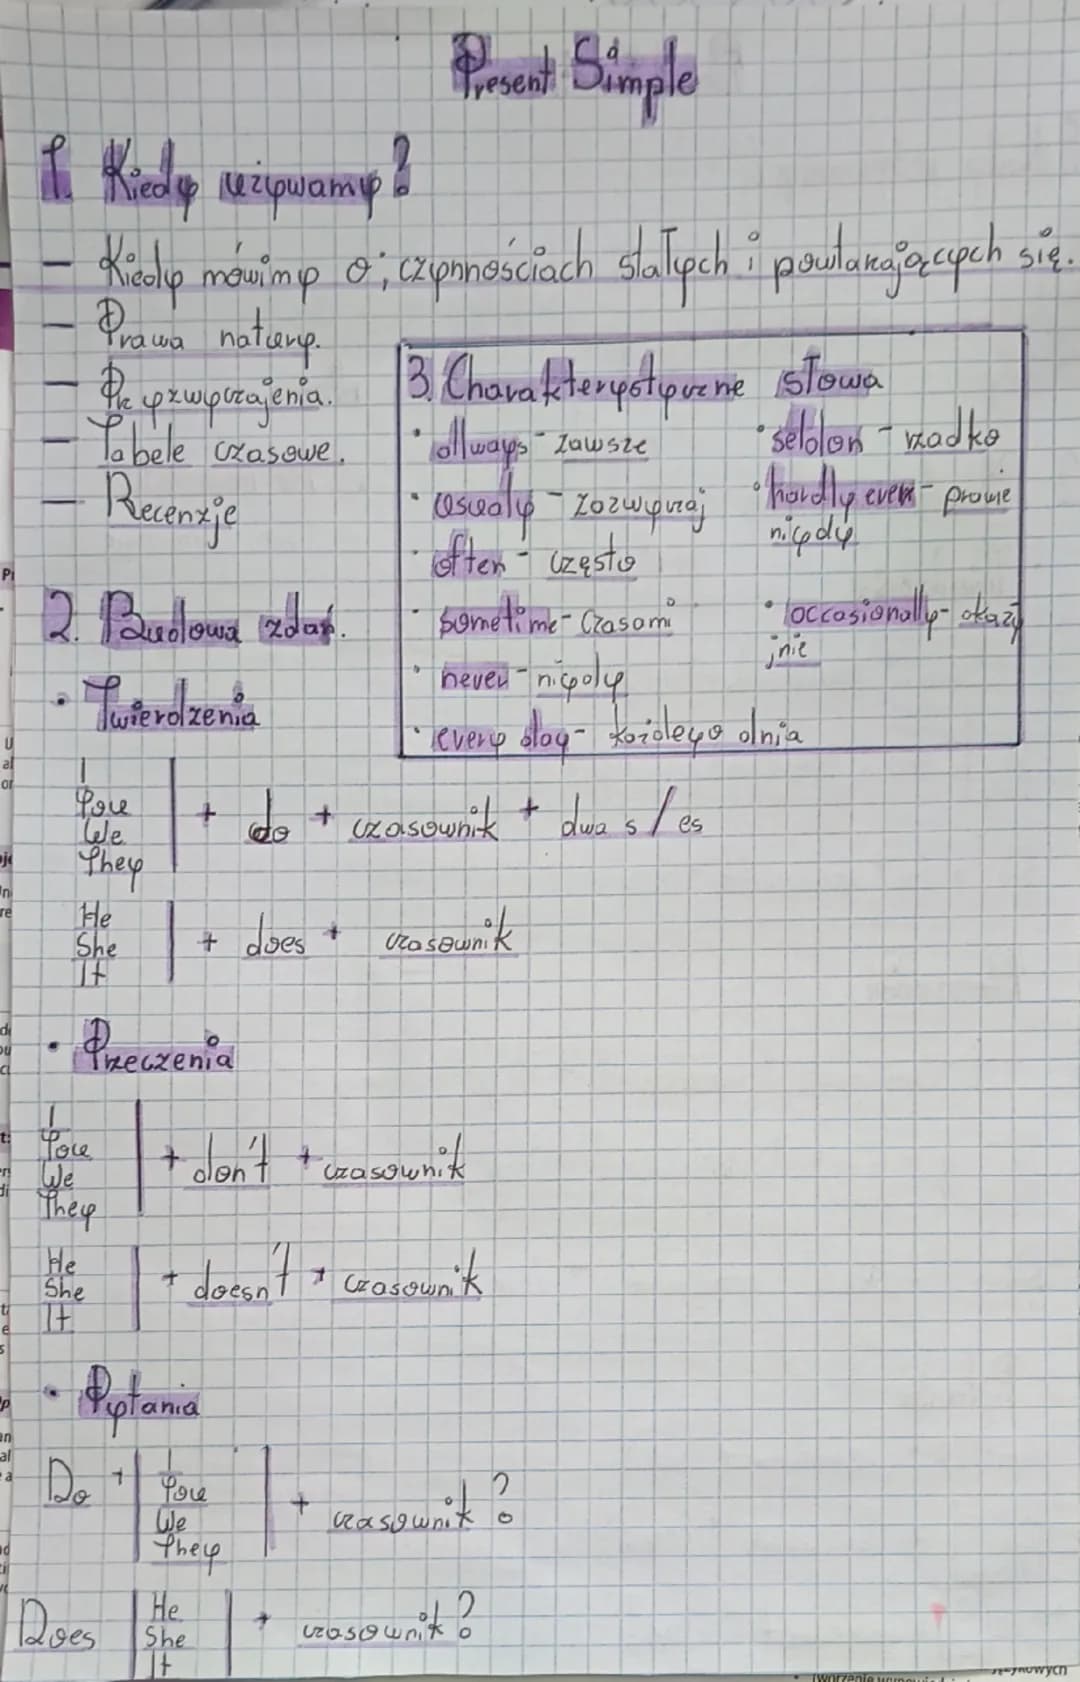 Present Simple
1. Kiedy używamy?
— Kiedy mówimy o; czynnościach stałych i powtarzających się.
— Prawa natury.
— Przyzwyczajenia.
— Tabele czasowe.
— Recenzje
3. Charakterystyczne słowa
• allways - zawsze
• usualy - zazwyczaj
• often - często
• sometime - Czasami
• never - nigdy
• every day - każdego dnia
• seldon - rzadko
• hardly ever - prawie
nigdy
• occasionally - okazy
jnie
2. Budowa zdań.
• Twierdzenia
I
You
We
They
+ do + czasownik + dwa s/es
He
She
It
+ does + czasownik
• Przeczenia
I
You
We
They
+ don't + czasownik
He
She
It
+ doesn't + czasownik
• Pytania
Do +
I
You
We
They
+ czasownik?
Does
He
She
It
+ czasownik?